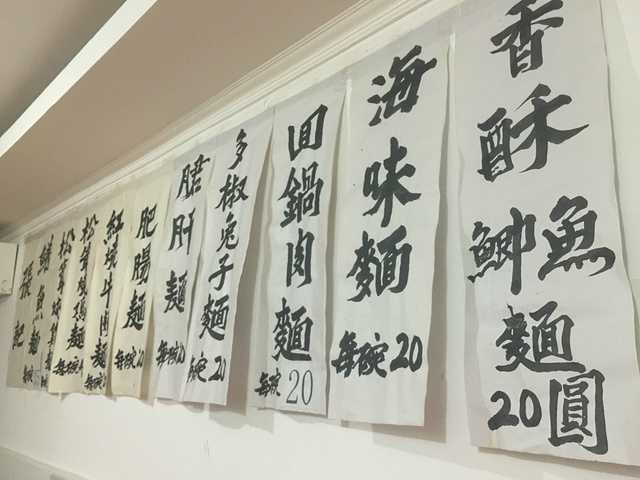 香酥鯽魚麵 20圓
海味麵 每碗20
回鍋肉麵 每碗20
多椒兔子麵 每碗20
肝麵 每碗20
肥腸麵 每碗20
紅燒牛肉麵 每碗
松茸燉雞麵 每碗
松茸燉雞
鱔魚麵
張記